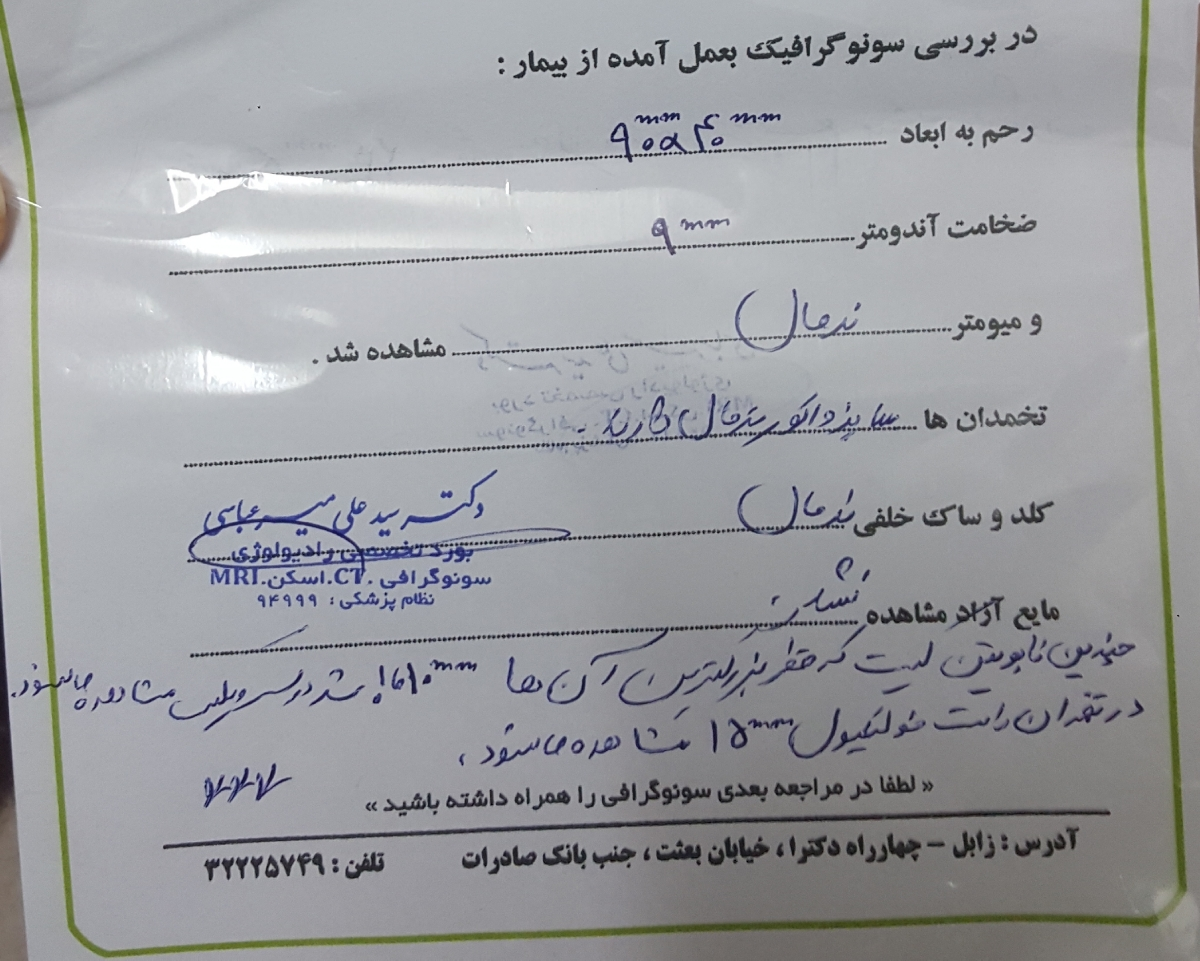 در بررسی سونوگرافیک بعمل آمده از بیمار :
رحم به ابعاد ۹۰×۴۰ mm mm
ضخامت آندومتر ۹ mm
و میومتر نرمال مشاهده شد .
تخمدان ها سایز و اکو نرمال دارند .
کلد و ساک خلفی نرمال
دکتر سید علی میرعباسی
بورد تخصصی رادیولوژی
سونوگرافی .CT.اسکن.MRI
نظام پزشکی : ۹۴۹۹۹
مایع آزاد مشاهده نشد
چندین نابوتین کیست که قطر بزرگترین آن ها ۱۰ mm در سرویکس مشاهده میشود.
در تخمدان راست فولیکول ۱۵ mm مشاهده میشود .
« لطفا در مراجعه بعدی سونوگرافی را همراه داشته باشید »
آدرس : زابل – چهارراه دکترا ، خیابان بعثت ، جنب بانک صادرات
تلفن : ۳۲۲۲۵۷۴۹